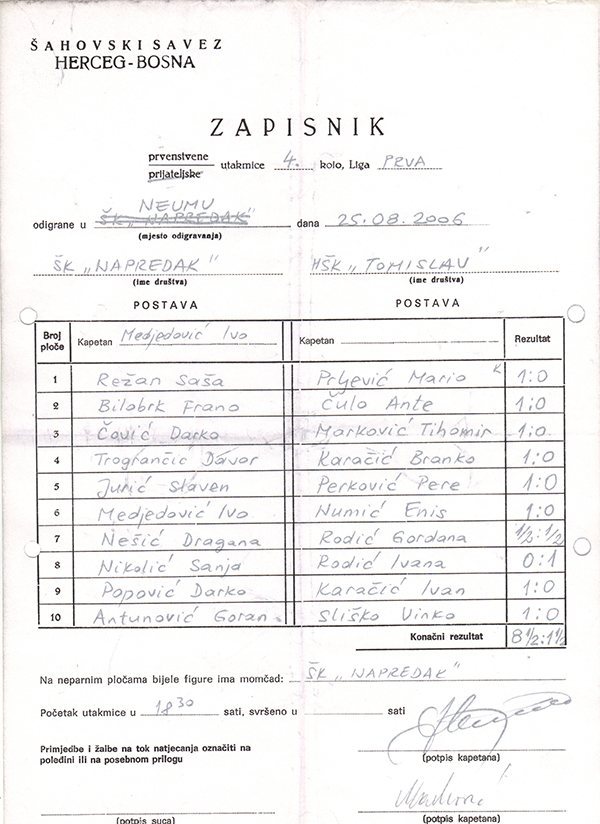 ŠAHOVSKI SAVEZ
HERCEG-BOSNA
ZAPISNIK
prvenstvene
prijateljske utakmice 4. kolo, Liga PRVA
NEUMU
odigrane u ŠK „NAPREDAK" dana 25.08.2006
(mjesto odigravanja)
ŠK „NAPREDAK" HŠK „TOMISLAV"
(ime društva) (ime društva)
POSTAVA POSTAVA
Broj ploče Kapetan Medjedović Ivo Kapetan Rezultat
1 Režan Saša Prljević Mario K 1:0
2 Bilobrk Frano Čulo Ante 1:0
3 Čavić Darko Marković Tihomir 1:0
4 Trogrančić Davor Karačić Branko 1:0
5 Jurić Slaven Perković Pere 1:0
6 Medjedović Ivo Numić Enis 1:0
7 Nešić Dragana Rodić Gordana 1/2:1/2
8 Nikolić Sanja Rodić Ivana 0:1
9 Popović Darko Karačić Ivan 1:0
10 Antunović Goran Sliško Vinko 1:0
Konačni rezultat 8 1/2:1 1/2
Na neparnim pločama bijele figure ima momčad: ŠK „NAPREDAK"
Početak utakmice u 18 30 sati, svršeno u sati
Primjedbe i žalbe na tok natjecanja označiti na
poleđini ili na posebnom prilogu
(potpis kapetana)
(potpis suca) (potpis kapetana)